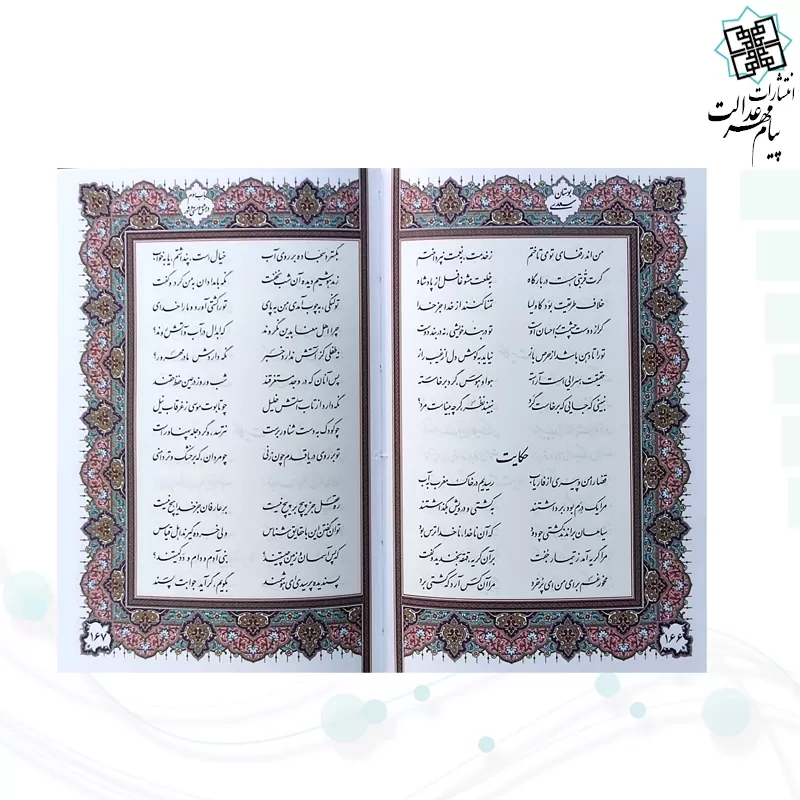 انتشارات
پیام مهر عدالت
بوستان
سعدی
من اندر قفای تو می‌تاختم ز خدمت به نعمت نپرداختم
گرت قربتی هست در بارگاه به خلعت مشو غافل از پادشاه
خلاف طریقت بود کاولیا تمنا کنند از خدا جز خدا
گر از دوست چشمت بر احسان اوست تو در بند خویشی، نه در بند دوست
تو را تا دهن باشد از حرص باز نیاید به گوش دل از غیب راز
حقیقت سرایی است آراسته هوا و هوس گرد برخاسته
نبینی که جایی که برخاست گرد نبیند نظر، گرچه بیناست مرد؟
حکایت
قضا را من و پیری از فاریاب رسیدیم در خاک مغرب به آب
مرا یک درم بود، برداشتند به کشتی و درویش بگذاشتند
سیاهان براندند کشتی چو دود که آن ناخدا، ناخدا ترس بود
مرا گریه آمد ز تیمار جفت بر آن گریه قهقه بخندید و گفت
مخور غم برای من ای پرخرد مرا آن کس آرد که کشتی برد
۱۶۶
باب سوم
بگسترد سجاده بر روی آب خیال است، پنداشتم، یا به خواب
ز مدهوشیم دیده آن شب نخفت نگه بامدادان به من کرد و گفت
تو لنگی، به چوب آمدی من به پای تو را کشتی آورد و ما را خدای
چرا اهل معنا بدین نگروند که ابدال در آب و آتش روند؟
نه طفلی کز آتش ندارد خبر نگه داردش مادر مهرور؟
پس آنان که در وجد مستغرقند شب و روز در عین حفظ حقند
نگه دارد از تاب آتش خلیل چو تابوت موسی ز غرقاب نیل
چو کودک به دست شناور برست نترسد، وگر دجله پهناور است
تو بر روی دریا قدم چون زنی چو مردان، که بر خشک تر دامنی
ره عقل جز پیچ بر پیچ نیست بر عارفان جز خدا هیچ نیست
توان گفتن این با حقایق شناس ولی خرده گیرند اهل قیاس
که پس آسمان و زمین چیستند؟ بنی آدم و دام و دد کیستند؟
پسندیده پرسیدی ای هوشمند بگویم، گر آید جوابت پسند
۱۶۷